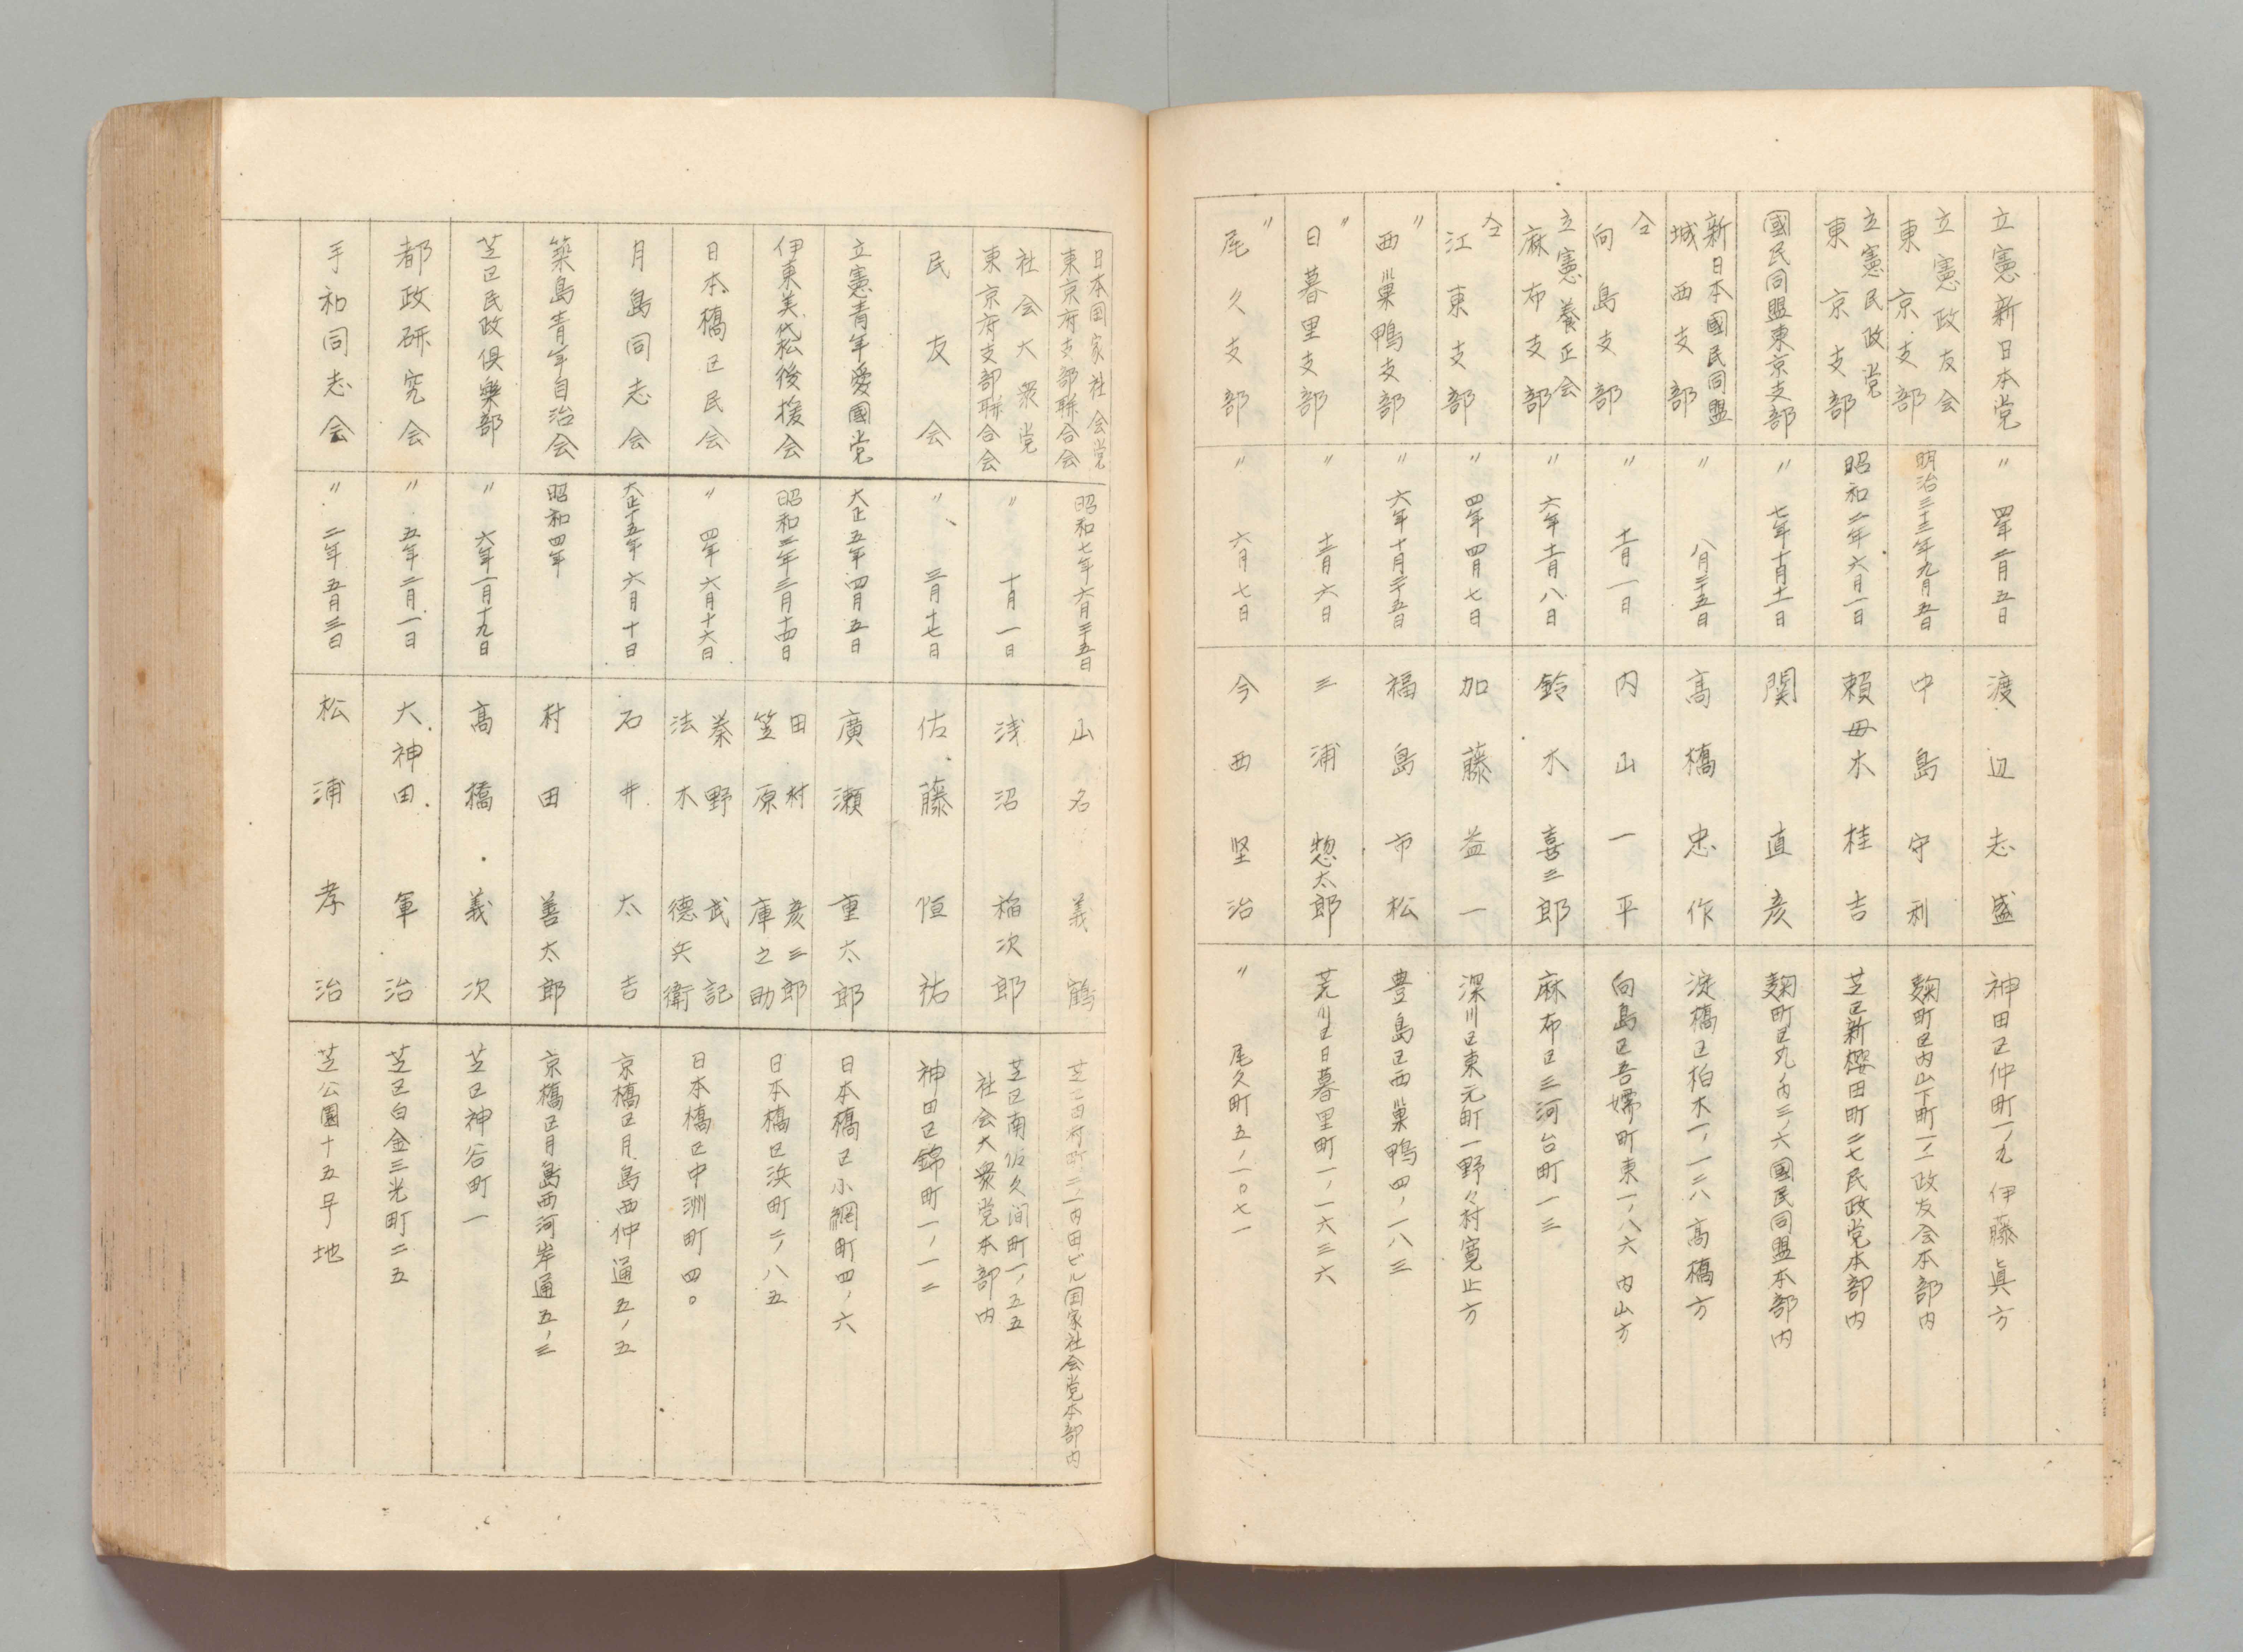 立憲新日本党 〃 四年二月五日 渡辺志盛 神田区仲町一ノ九 伊藤眞方
立憲政友会
東京支部 明治三十三年九月五日 中島守利 麹町区内山下町一ノ二 政友会本部内
立憲民政党
東京支部 昭和二年六月一日 頼母木桂吉 芝区新櫻田町二七民政党本部内
國民同盟東京支部 〃 七年十月十一日 関直彦 麹町区丸ノ内三ノ六國民同盟本部内
新日本國民同盟
城西支部 〃 八月二十五日 高橋忠作 淀橋区柏木一ノ一二八 高橋方
仝
向島支部 〃 十一月一日 内山一平 向島区吾嬬町東一ノ八六 内山方
立憲養正会
麻布支部 〃 六年十一月八日 鈴木喜三郎 麻布区三河台町一三
仝
江東支部 〃 四年四月七日 加藤益一 深川区東元町一野々村寛止方
〃
西巣鴨支部 〃 六年十月二十五日 福島市松 豊島区西巣鴨四ノ一八三
〃
日暮里支部 〃 十一月六日 三浦惣太郎 荒川区日暮里町一ノ一六三六
〃
尾久支部 〃 六月七日 今西堅治 〃 尾久町五ノ一〇七一
日本国家社会党
東京府支部聯合会 昭和七年六月二十五日 山名義鶴 芝区田村町二ノ一内田ビル国家社会党本部内
社会大衆党
東京府支部聯合会 〃 十月一日 浅沼稲次郎 芝区南佐久间町一ノ五五
社会大衆党本部内
民友会 〃 三月十七日 佐藤恒祐 神田区錦町一ノ一二
立憲青年愛國党 大正五年四月五日 廣瀬重太郎 日本橋区小網町四ノ六
伊東美代松後援会 昭和二年三月十四日 田村彦三郎
笠原庫之助 日本橋区浜町二ノ八五
日本橋区民会 〃 四年六月十六日 秦野武記
法木德兵衛 日本橋区中洲町四〇
月島同志会 大正十五年六月十日 石井太吉 京橋区月島西仲通五ノ五
築島青年自治会 昭和四年 村田善太郎 京橋区月島西河岸通五ノ三
芝区民政倶樂部 〃 六年一月十九日 高橋義次 芝区神谷町一
都政研究会 〃 五年二月一日 大神田軍治 芝区白金三光町二五
手和同志会 〃 二年五月三日 松浦孝治 芝公園十五号地